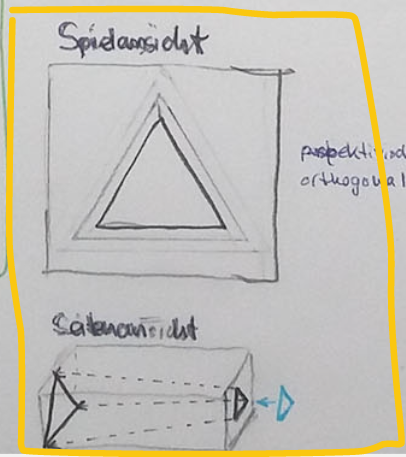 Spielansicht
perspektivisch
orthogonal
Seitenansicht